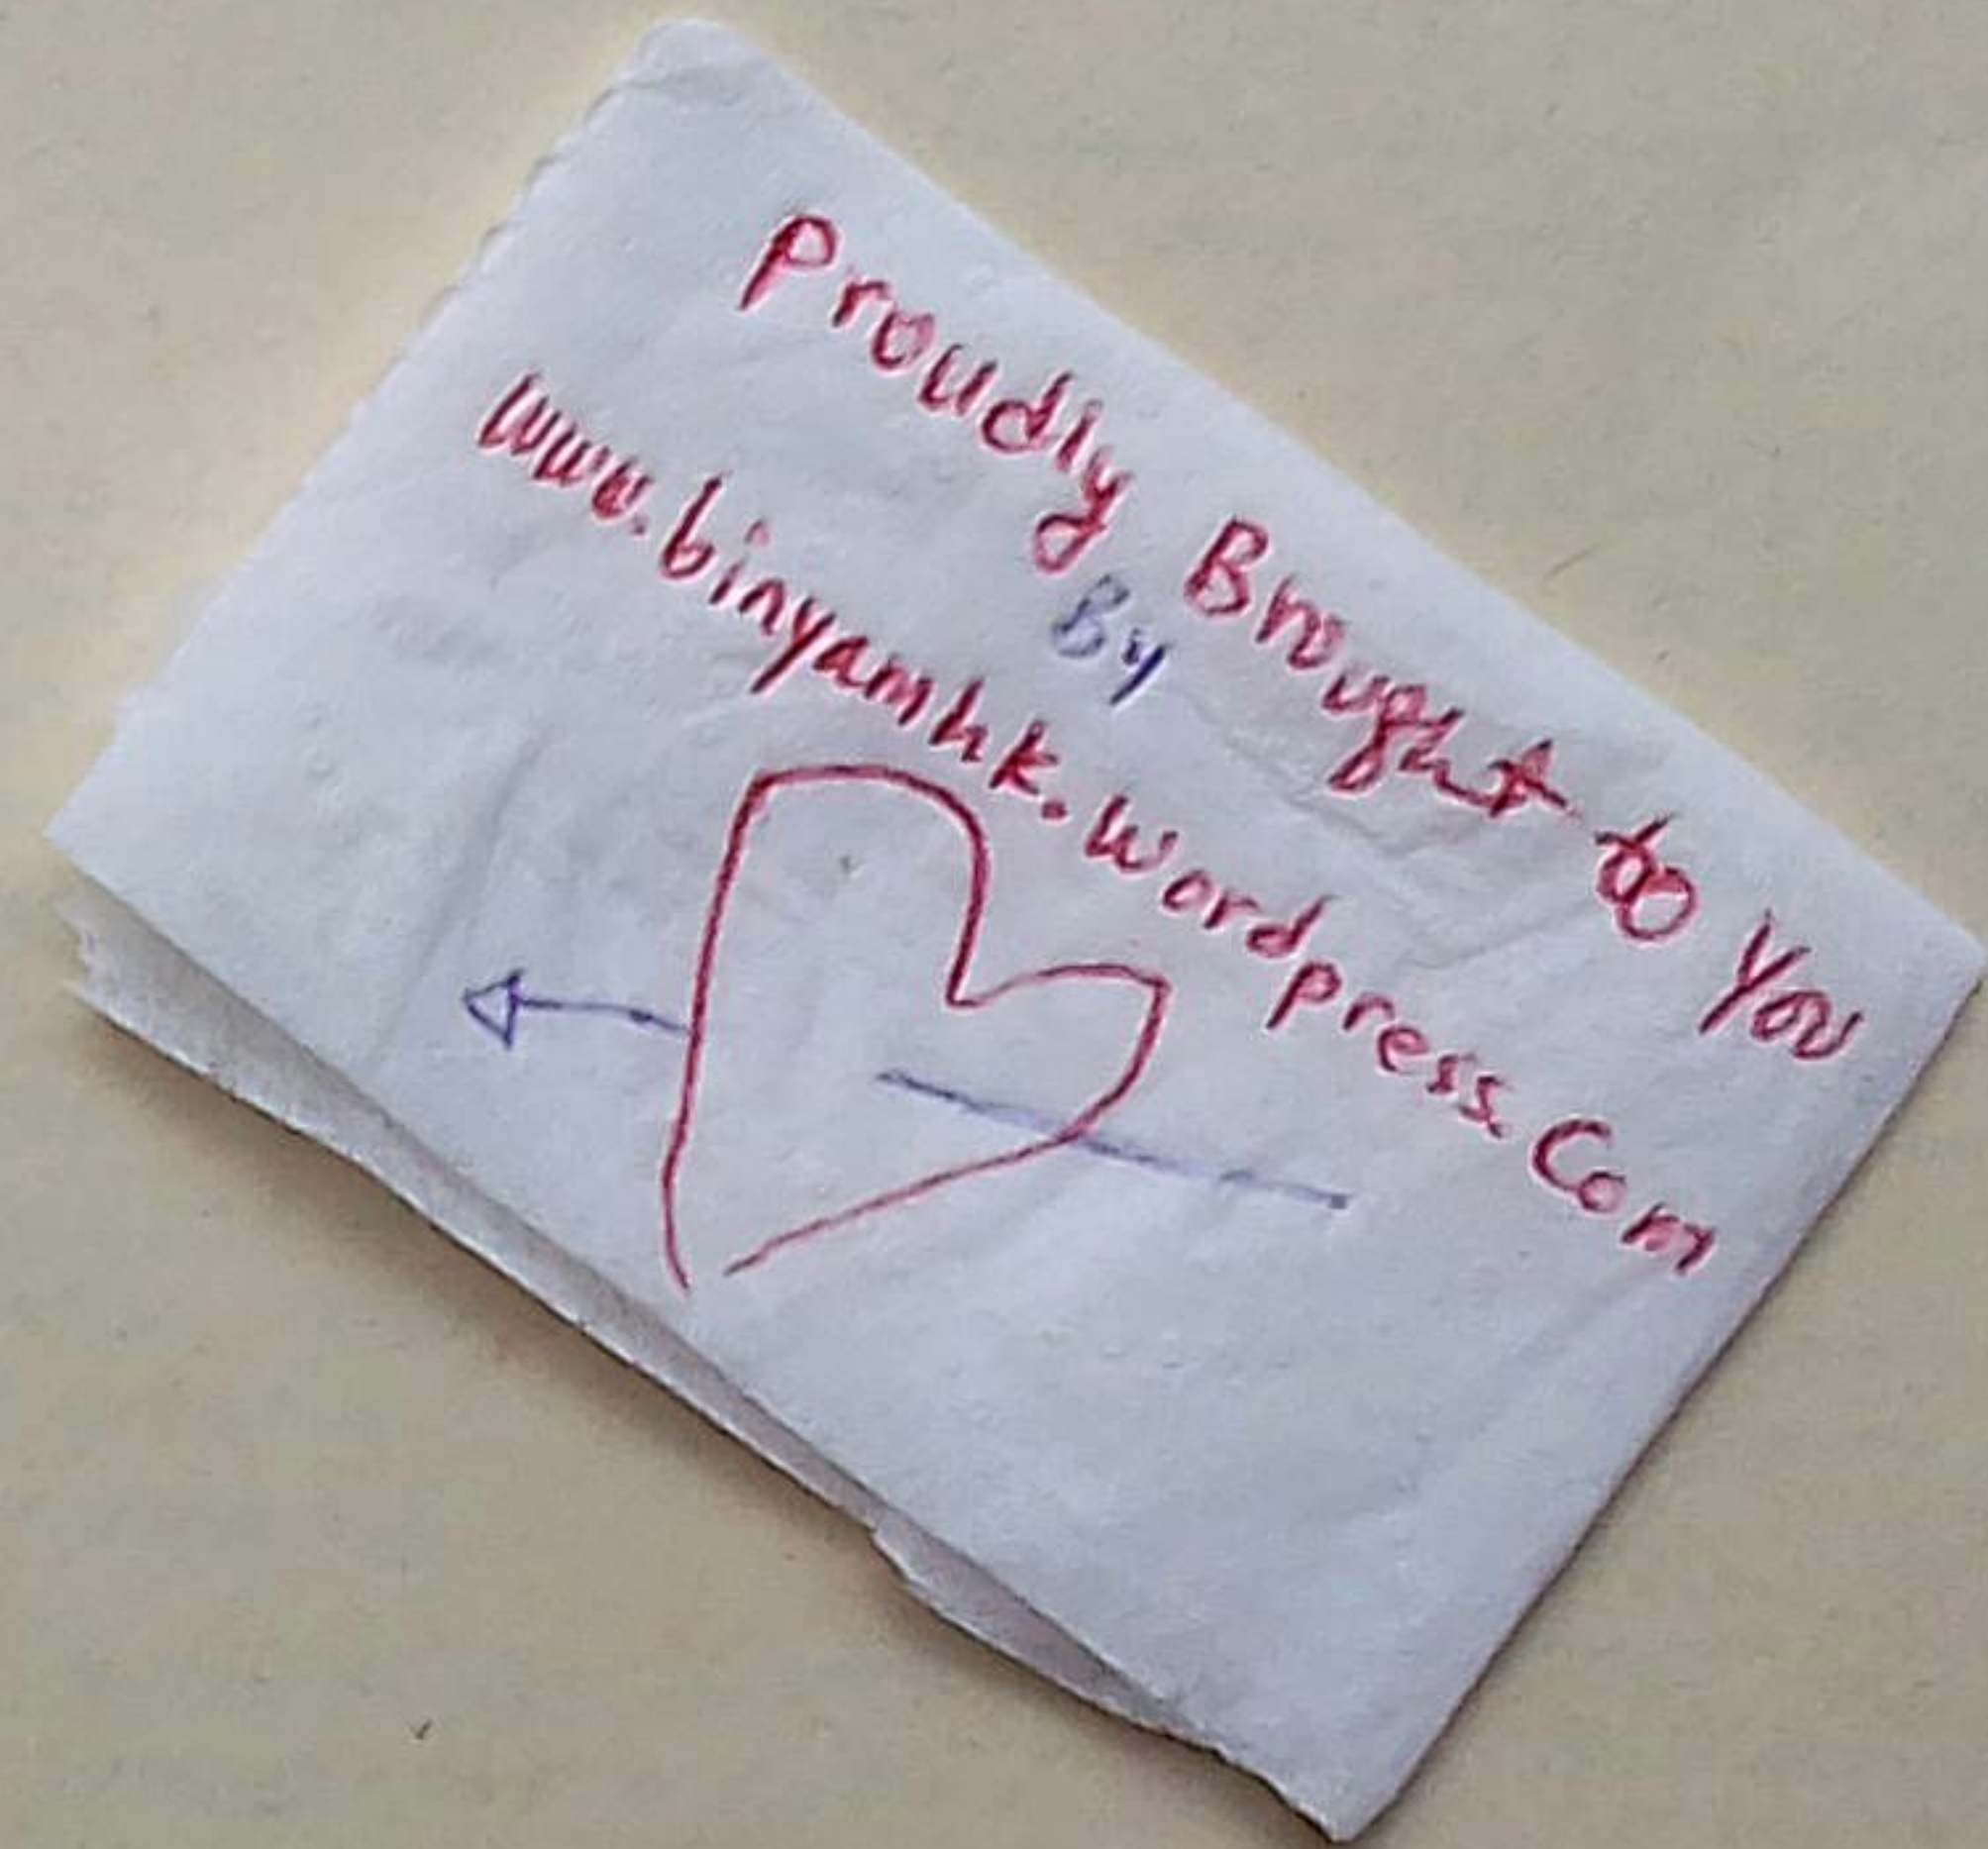 Proudly Brought to You
By
www.binyamhk.wordpress.Com